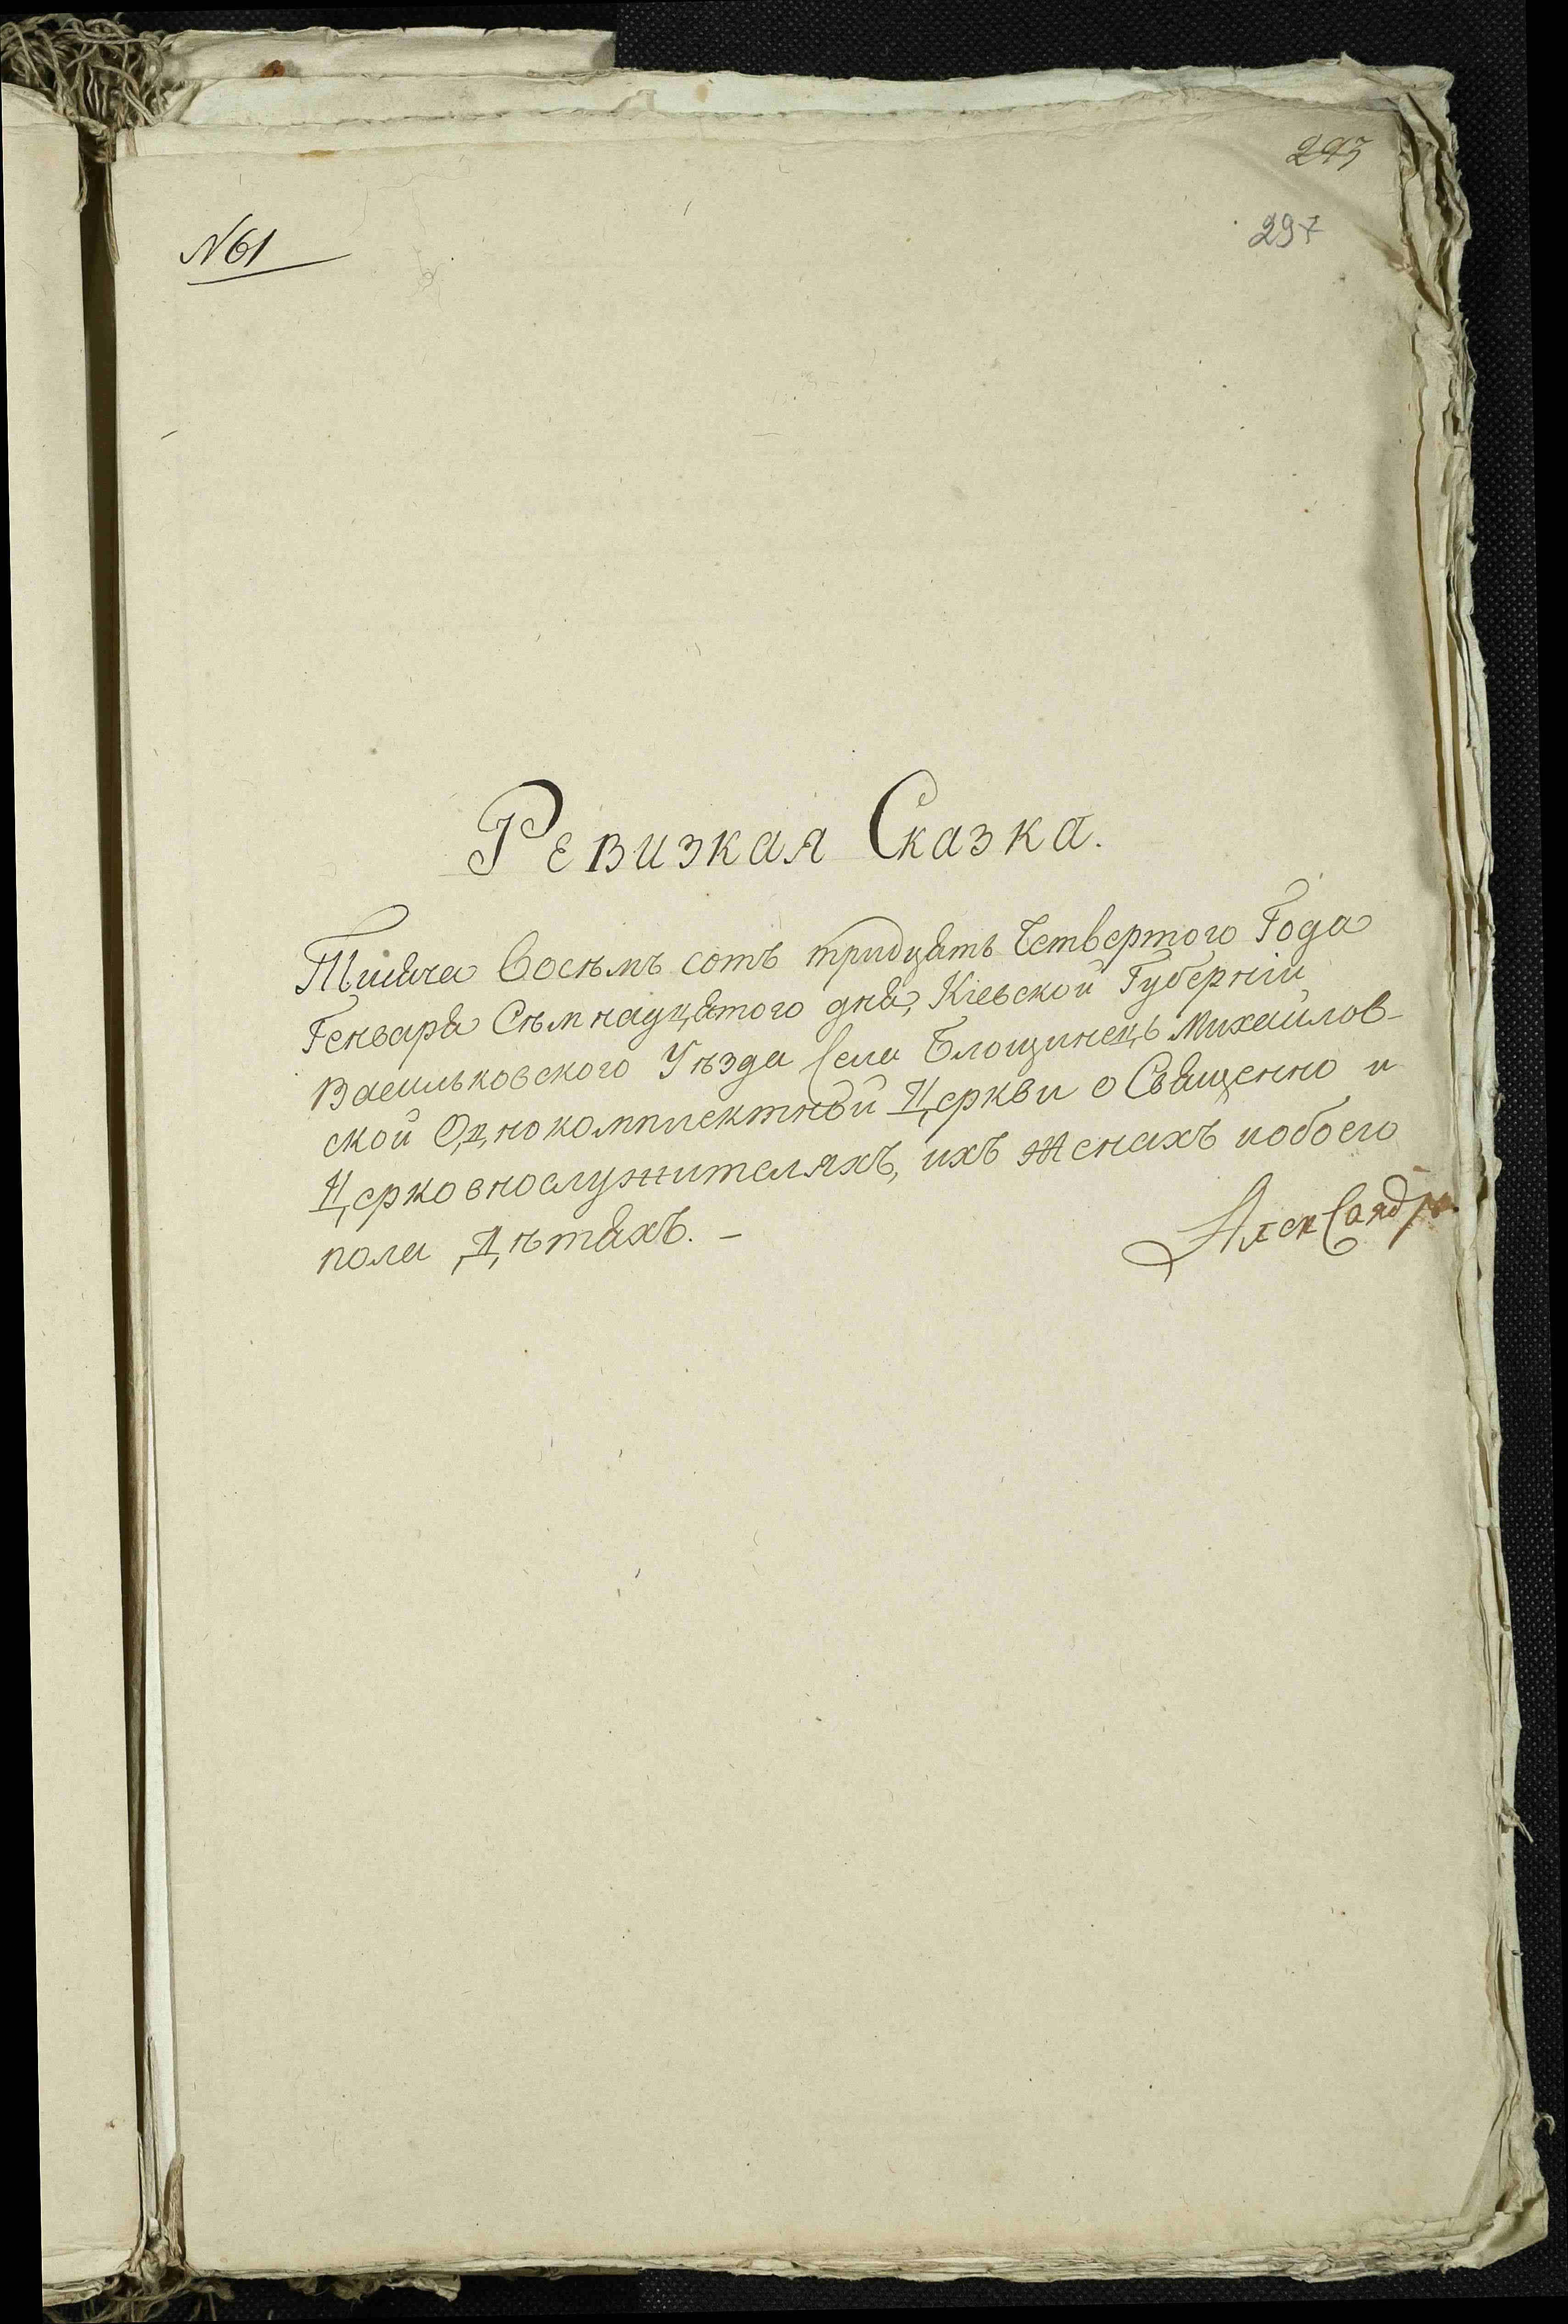 293
297
№ 61
Ревизкая Сказка.
Тисяча Восѣмъ сотъ тридцять Четвертого Года
Генваря Сѣмнадцятого дня, Кіевской Губерніи
Васильковского Уѣзда Села Блощинець Михайлов-
ской Однокомплектной Церкви о Священно и
Церковнослужителяхъ, ихъ Женахъ иобоего
пола Дѣтяхъ. –
Александръ